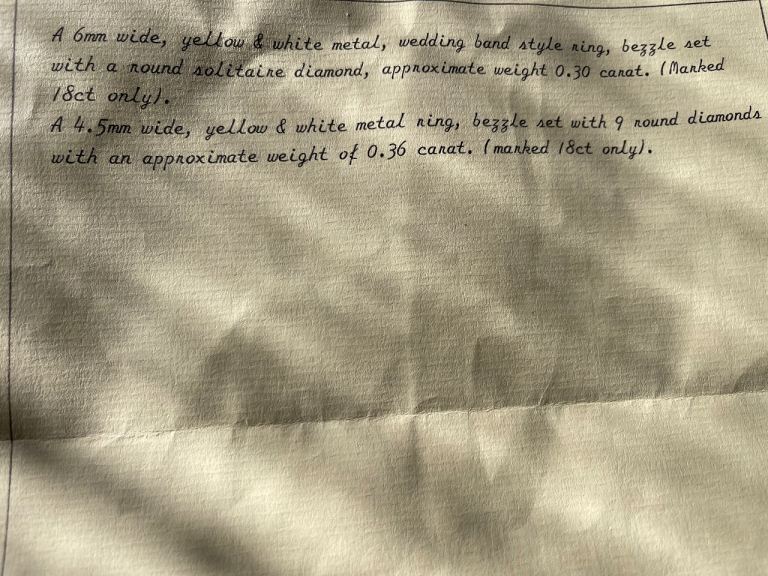 A 6mm wide, yellow & white metal, wedding band style ring, bezzle set
with a round solitaire diamond, approximate weight 0.30 carat. (Marked
18ct only).
A 4.5mm wide, yellow & white metal ring, bezzle set with 9 round diamonds
with an approximate weight of 0.36 carat. (marked 18ct only).